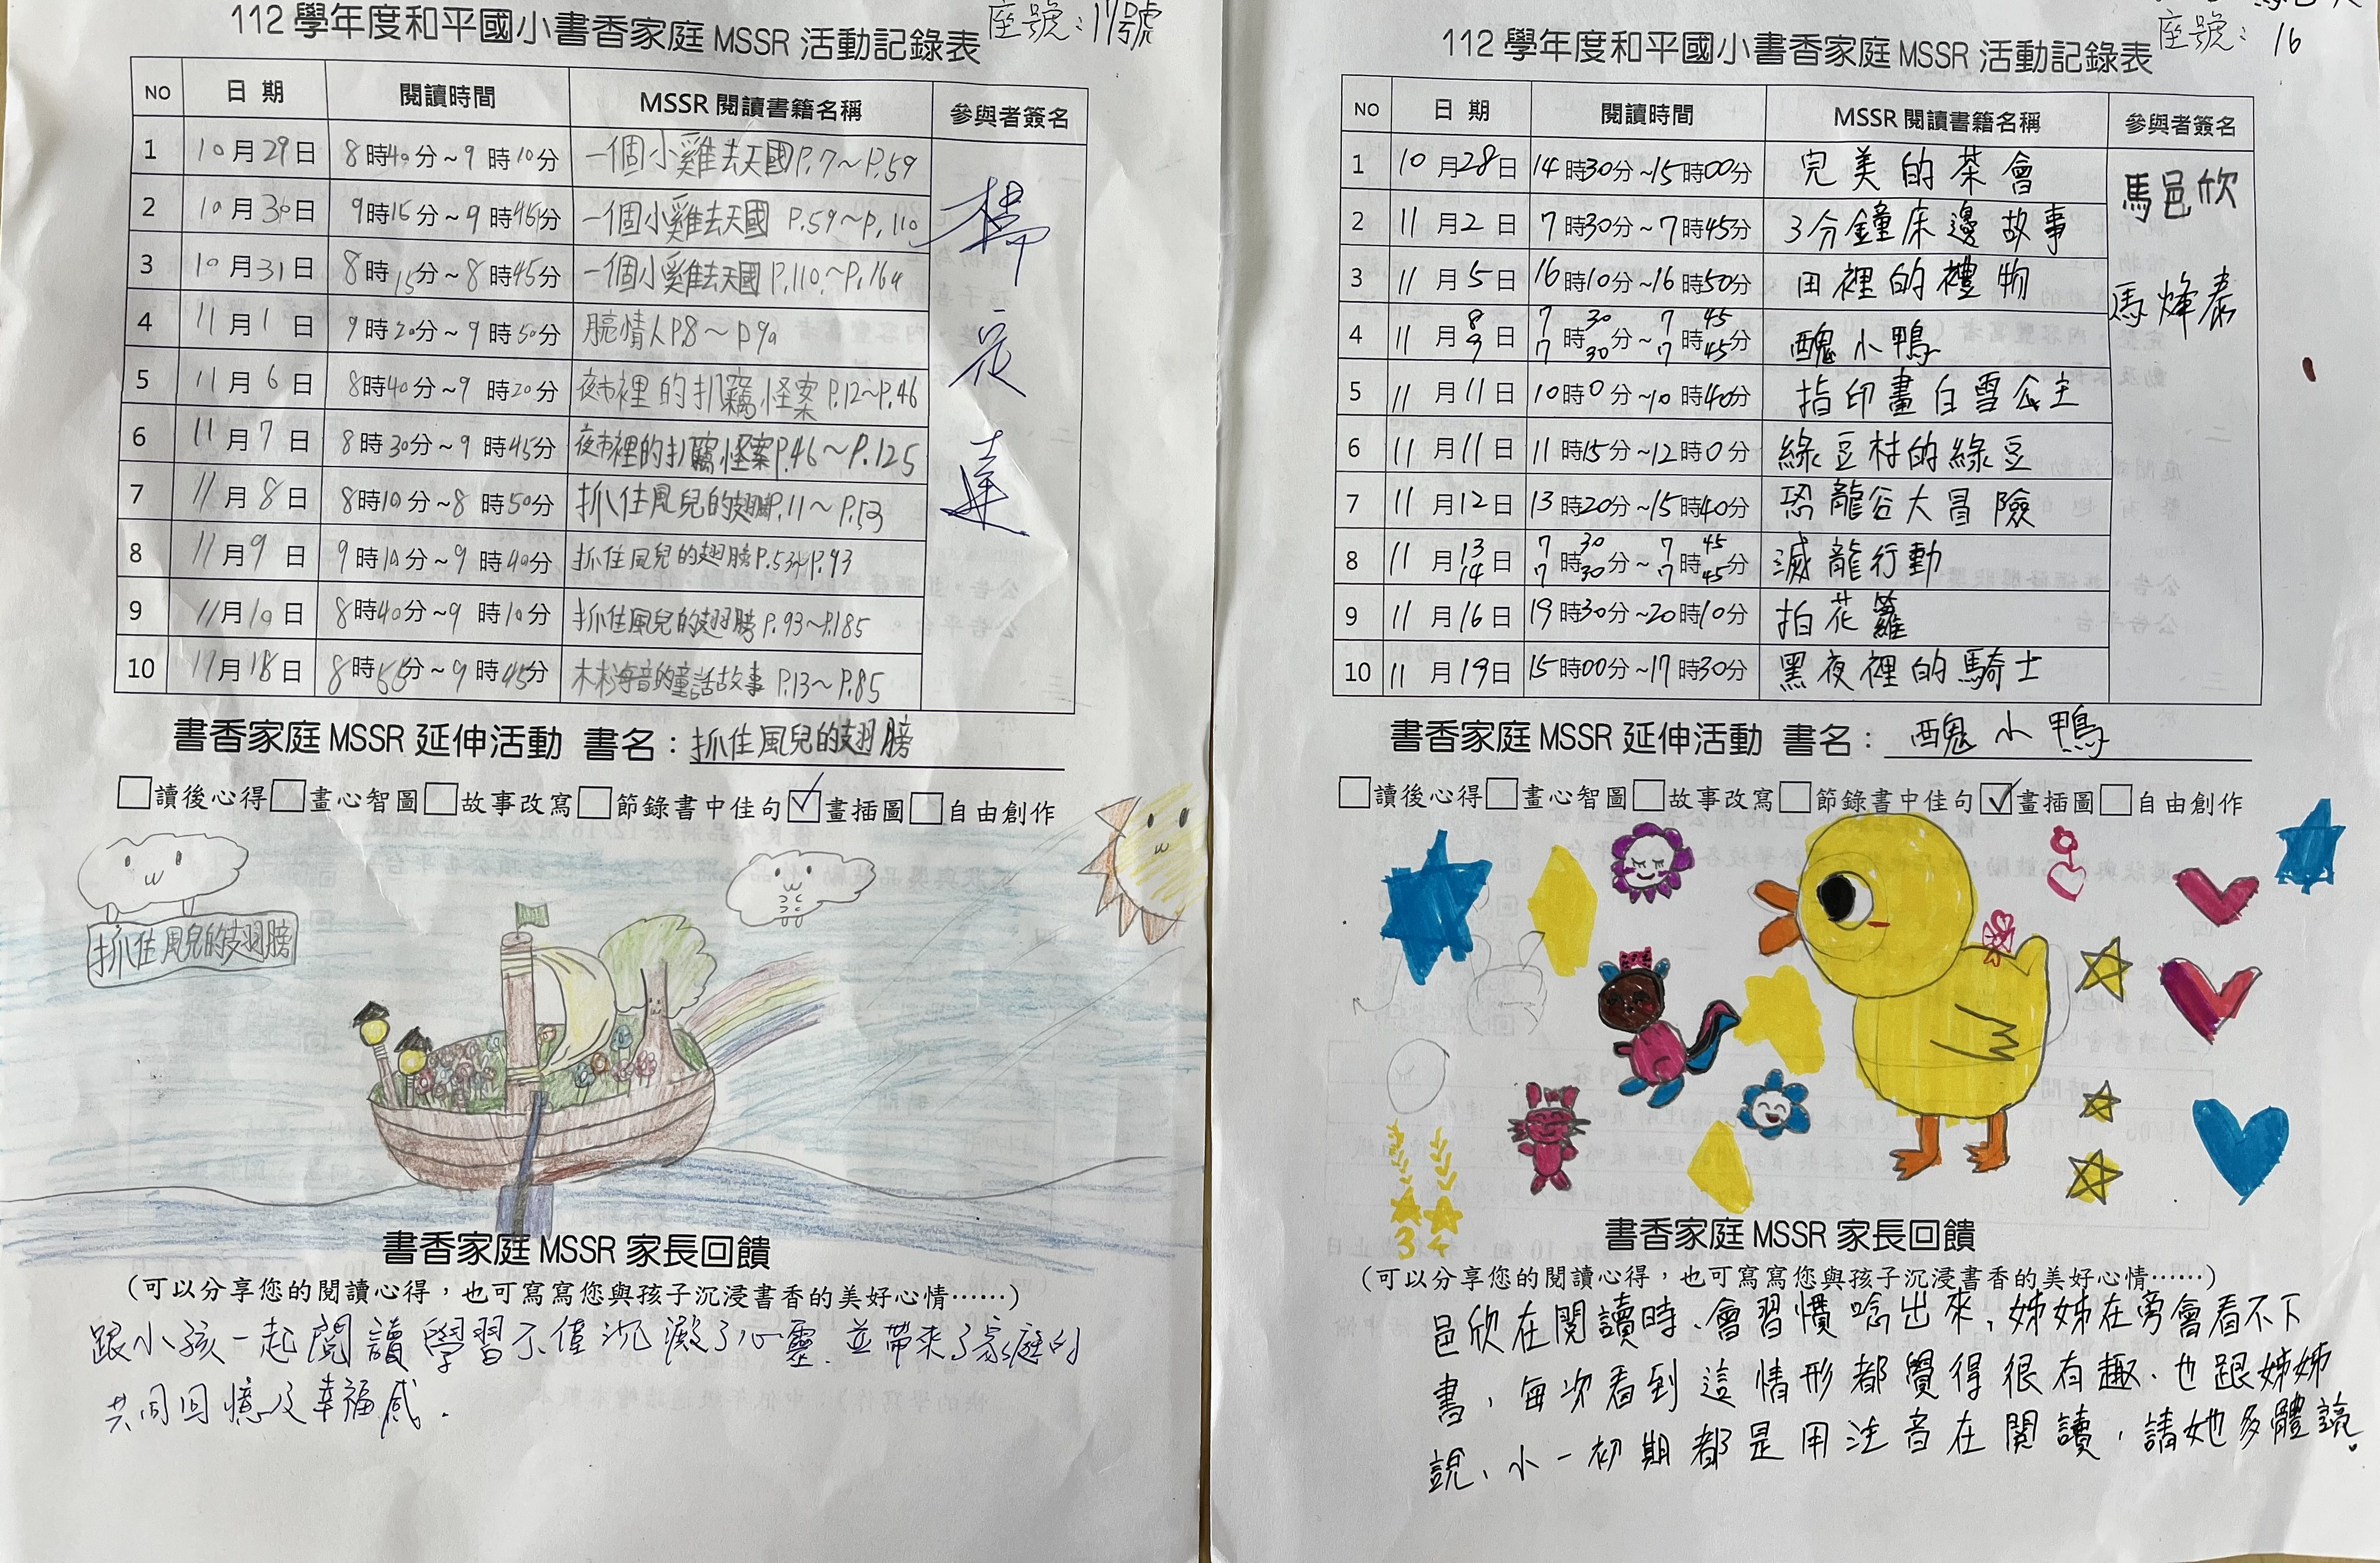 112 學年度和平國小書香家庭 MSSR 活動記錄表
座號:17號
NO 日 期 閱讀時間 MSSR 閱讀書籍名稱 參與者簽名
1 10月29日 8時40分~9時10分 一個小雞去天國P.7~P.59
2 10月30日 9時15分~9時45分 一個小雞去天國 P.59~P.110
3 10月31日 8時15分~8時45分 一個小雞去天國 P.110~P.164
4 11月1日 9時20分~9時50分 情人P8~P90
5 11月6日 8時40分~9時20分 夜市裡的扒竊怪案 P.12~P.46
6 11月7日 8時30分~9時45分 夜市裡的扒竊怪案P.46~P.125
7 11月8日 8時10分~8時50分 抓住風兒的翅膀P.11~P.53
8 11月9日 9時10分~9時40分 抓住風兒的翅膀P.53~P.93
9 11月10日 8時40分~9時10分 抓住風兒的翅膀 P.93~P.185
10 11月18日 8時55分~9時45分 林海音的童話故事 P.13~P.85
書香家庭 MSSR 延伸活動 書名:抓住風兒的翅膀
讀後心得 畫心智圖 故事改寫 節錄書中佳句 ✓畫插圖 自由創作
抓住風兒的翅膀
書香家庭 MSSR 家長回饋
(可以分享您的閱讀心得,也可寫寫您與孩子沉浸書香的美好心情……)
跟小孩一起閱讀學習不僅沉澱了心靈.並帶來了家庭的
共同回憶及幸福感.
112 學年度和平國小書香家庭 MSSR 活動記錄表
座號: 16
NO 日 期 閱讀時間 MSSR 閱讀書籍名稱 參與者簽名
1 10月28日 14時30分~15時00分 完美的茶會 馬邑欣
2 11月2日 7時30分~7時45分 3分鐘床邊故事
3 11月5日 16時10分~16時50分 田裡的禮物 馬烽泰
4 11月8日 7時30分~7時45分 醜小鴨
9 7 30 7 45
5 11月11日 10時0分~10時40分 指印畫白雪公主
6 11月11日 11時15分~12時0分 綠豆村的綠豆
7 11月12日 13時20分~15時40分 恐龍谷大冒險
8 11月13日 7時30分~7時45分 滅龍行動
14 7 30 7 45
9 11月16日 19時30分~20時10分 拍花籮
10 11月19日 15時00分~17時30分 黑夜裡的騎士
書香家庭 MSSR 延伸活動 書名:醜小鴨
讀後心得 畫心智圖 故事改寫 節錄書中佳句 ✓畫插圖 自由創作
3 4
書香家庭 MSSR 家長回饋
(可以分享您的閱讀心得,也可寫寫您與孩子沉浸書香的美好心情……)
邑欣在閱讀時、會習慣唸出來,姊姊在旁會看不下
書,每次看到這情形都覺得很有趣、也跟姊姊
說、小一初期都是用注音在閱讀,請她多體諒.